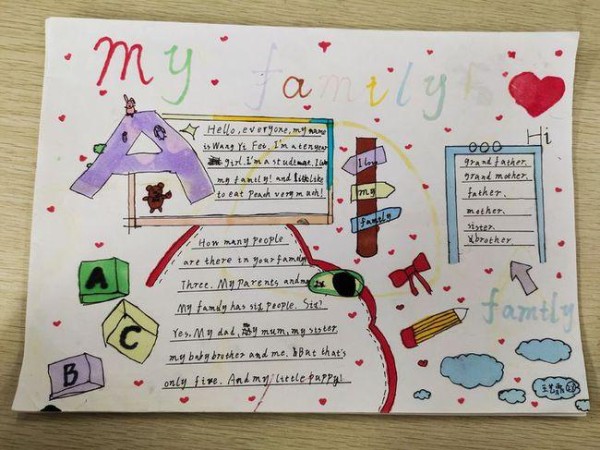 My family!
Hello, everyone, my name
is Wang Yi Fei. I'm a ten year
girl. I'm a studtmat. I like
my family! and I like
to eat Peach very much!
I love
my
family
Hi
grand father.
grand mother.
father.
mother.
sister.
brother.
How many people
are there in your family
Three. My Parents and me
My family has six people. Six?
Yes, My dad, my mum, my sister,
my baby brother and me. But that's
only five. And my little puppy!
family
A
C
B